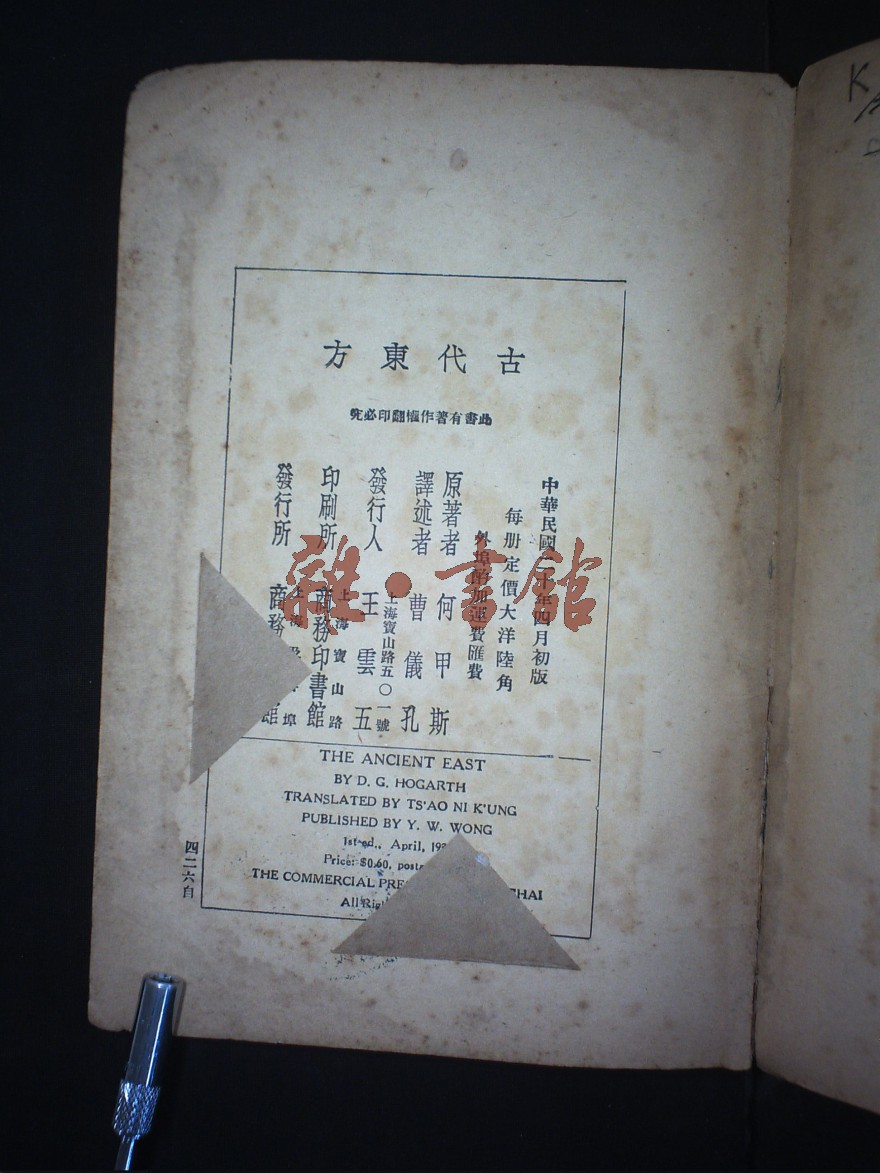 古代東方
此書有著作權翻印必究
中華民國二十年四月初版
每册定價大洋陸角
外埠酌加運費匯費
原著者 何甲斯
譯述者 曹儀孔
發行人 王雲五
上海寶山路五〇一號
印刷所 商務印書館
上海寶山路
發行所 商務 館
上海 埠
THE ANCIENT EAST
BY D. G. HOGARTH
TRANSLATED BY TS'AO NI K'UNG
PUBLISHED BY Y. W. WONG
1st ed., April, 193
Price: $0.60, post
THE COMMERCIAL PRE HAI
All Rig
四二六自
雜·書館
K